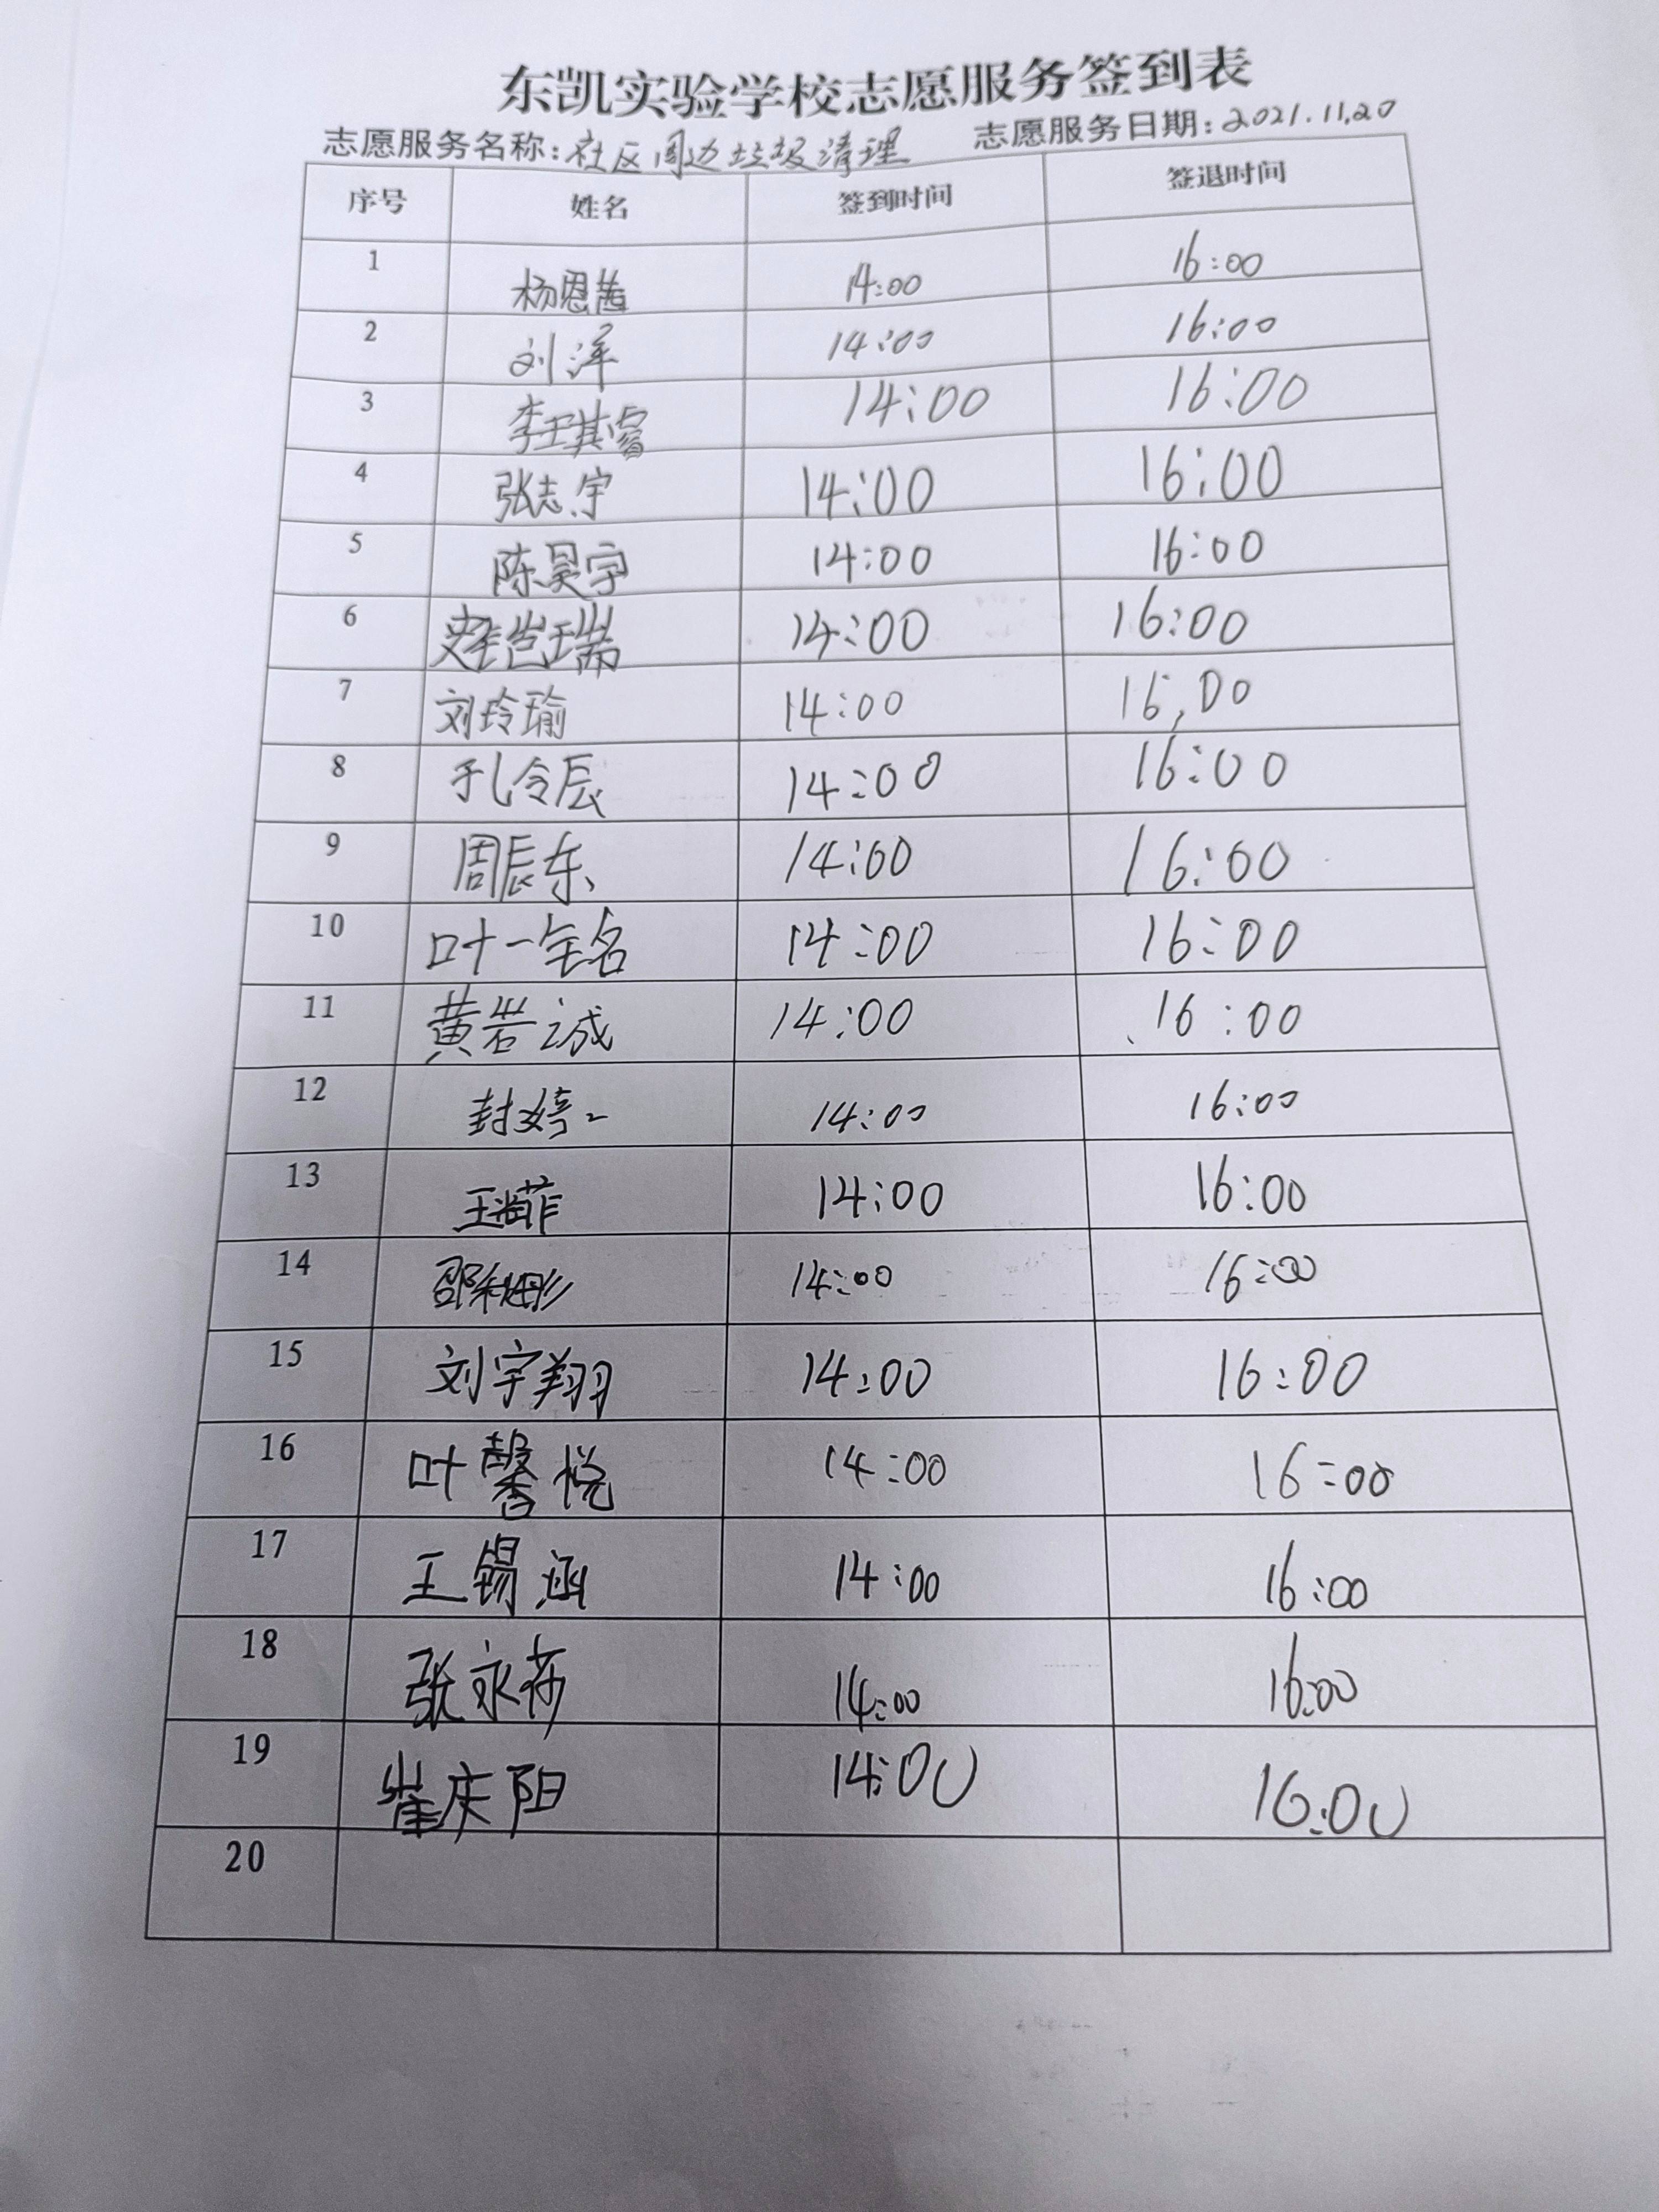 东凯实验学校志愿服务签到表
志愿服务名称:社区周边垃圾清理 志愿服务日期:2021.11.20
序号 姓名 签到时间 签退时间
1 杨恩茜 14:00 16:00
2 刘洋 14:00 16:00
3 李琪睿 14:00 16:00
4 张志宇 14:00 16:00
5 陈昊宇 14:00 16:00
6 14:00 16:00
7 刘玲瑜 14:00 16,00
8 孔令辰 14:00 16:00
9 周辰东 14:00 16:00
10 叶一铭 14:00 16:00
11 黄岩诚 14:00 16:00
12 封婷 14:00 16:00
13 14:00 16:00
14 14:00 16:00
15 刘宇翔 14:00 16:00
16 叶馨悦 14:00 16:00
17 王锡涵 14:00 16:00
18 张永莎 14:00 16:00
19 崔庆阳 14:00 16:00
20